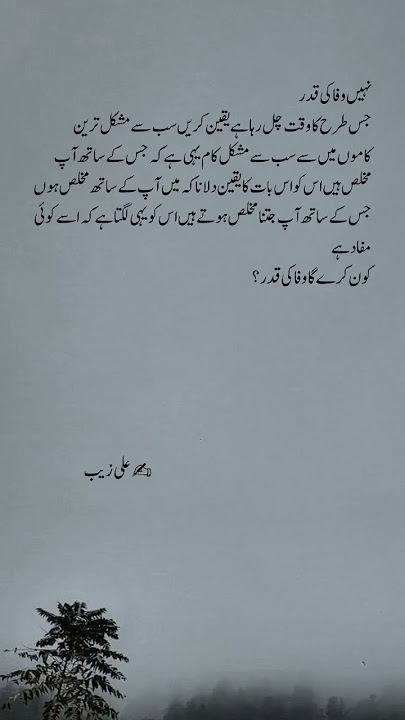 نہیں وفا کی قدر
جس طرح کا وقت چل رہا ہے یقین کریں سب سے مشکل ترین
کاموں میں سے سب سے مشکل کام یہی ہے کہ جس کے ساتھ آپ
مخلص ہیں اس کو اس بات کا یقین دلانا کہ میں آپ کے ساتھ مخلص ہوں
جس کے ساتھ آپ جتنا مخلص ہوتے ہیں اس کو یہی لگتا ہے کہ اسے کوئی
مفاد ہے
کون کرے گا وفا کی قدر ؟
✍ علی زیب